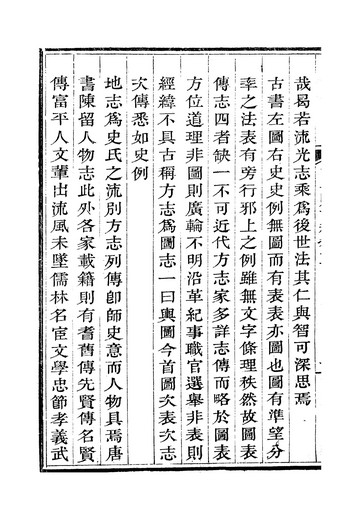 哉曷若流光志乘爲後世法其仁與智可深思焉
古書左圖右史史例無圖而有表表亦圖也圖有準望分
率之法表有旁行邪上之例雖無文字條理秩然故圖表
傳志四者缺一不可近代方志家多詳志傳而略於圖表
方位道理非圖則廣輪不明沿革紀事職官選舉非表則
經緯不具古稱方志爲圖志一曰輿圖今首圖次表次志
次傳悉如史例
地志爲史氏之流別方志列傳卽師史意而人物具焉唐
書陳留人物志此外各家載籍則有耆舊傳先賢傳名賢
傳富平人文蔚出流風未墜儒林名宦文學忠節孝義武